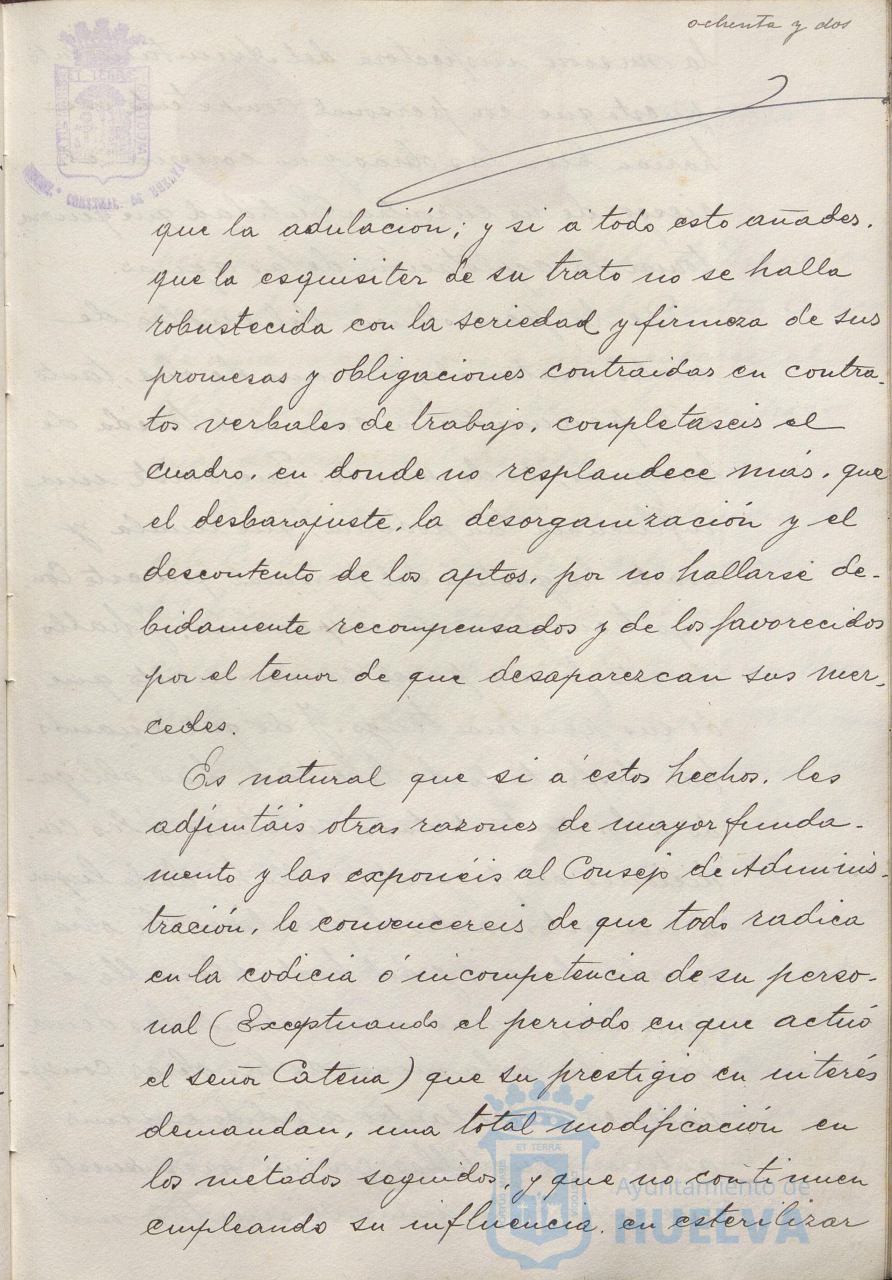 ochenta y dos
que la adulación; y si á todo esto añades.
que la esquisitez de su trato no se halla
robustecida con la seriedad y firmeza de sus
promesas y obligaciones contraidas en contra-
tos verbales de trabajo. completaseis el
cuadro. en donde no resplandece más. que
el desbarajuste. la desorganización y el
descontento de los aptos. por no hallarse de-
bidamente recompensados y de los favorecidos
por el temor de que desaparezcan sus mer-
cedes.
Es natural que si á estos hechos. les
adjuntáis otras razones de mayor funda-
mento y las exponéis al Consejo de Adminis-
tración, le convencereis de que todo radica
en la codicia ó incompetencia de su perso-
nal (Exceptuando el periodo en que actuó
el señor Catena) que su prestigio en interés
demandan, una total modificación en
los métodos seguidos, y que no continuen
empleando su influencia. en esterilizar
ET TERRA
Ayuntamiento de
HUELVA